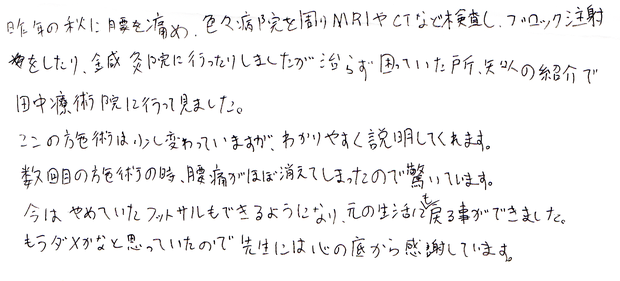 昨年の秋に腰を痛め、色々病院を周りMRIやCTなど検査し、ブロック注射
をしたり、鍼灸院に行ったりしましたが治らず困っていた所、知人の紹介で
田中療術院に行って見ました。
ここの施術は少し変わっていますが、わかりやすく説明してくれます。
数回目の施術の時、腰痛がほぼ消えてしまったので驚いています。
今はやめていたフットサルもできるようになり、元の生活にも戻る事ができました。
もうダメかなと思っていたので先生には心の底から感謝しています。